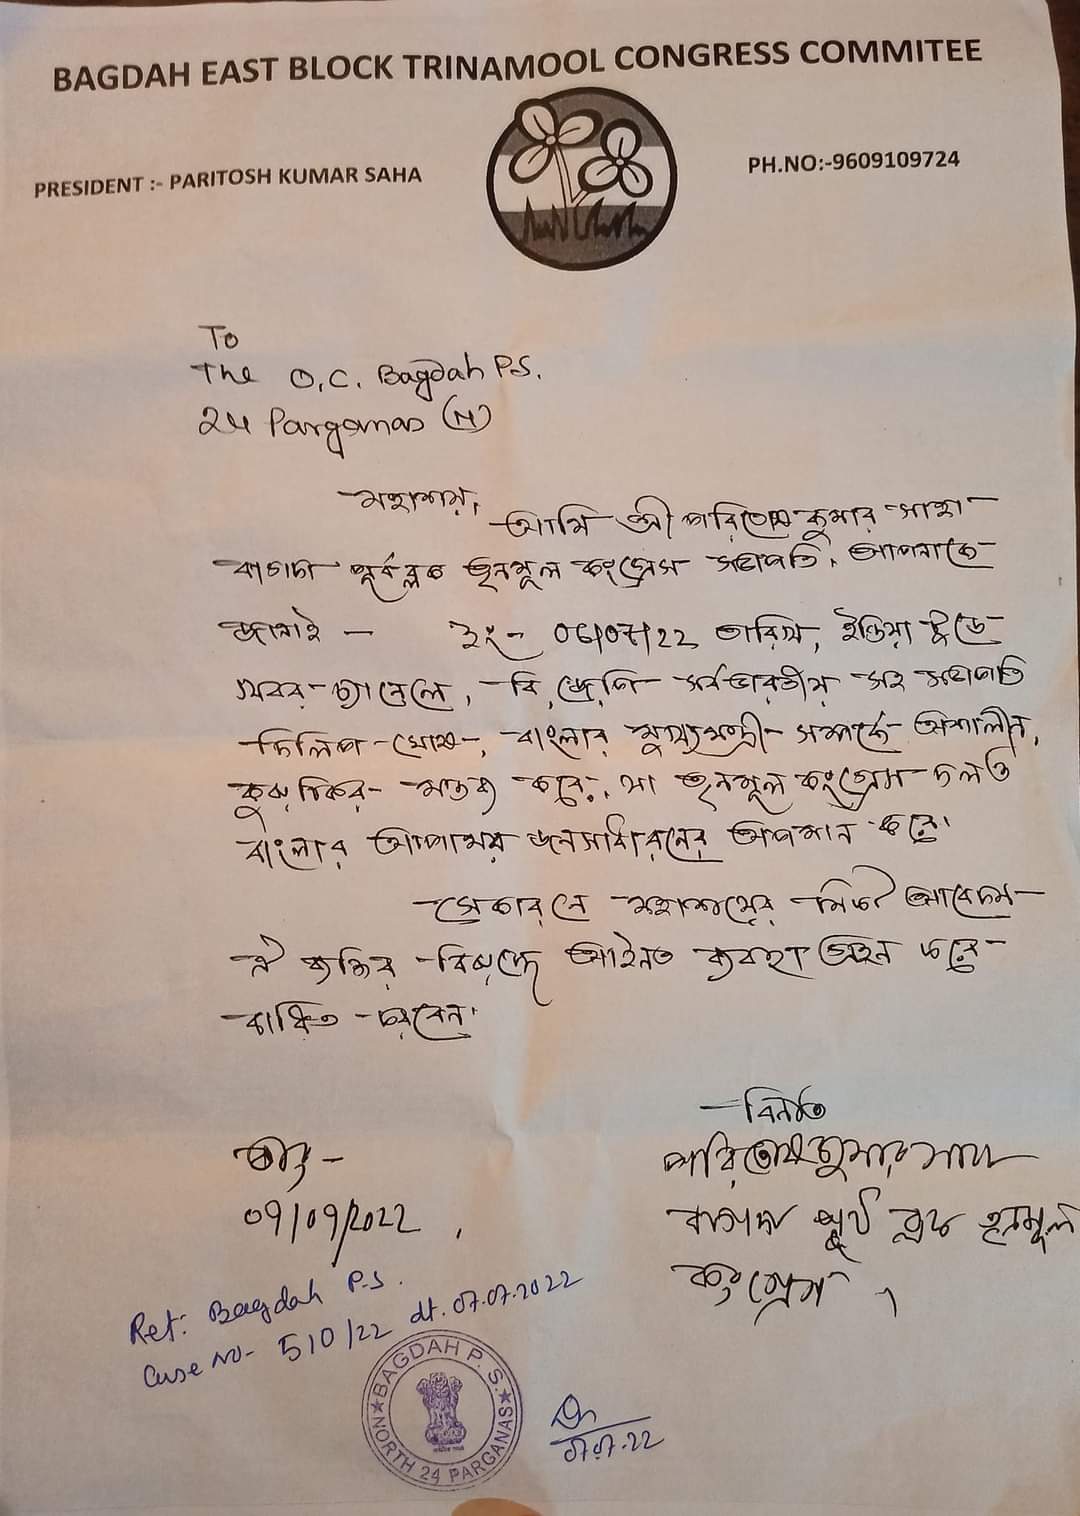 BAGDAH EAST BLOCK TRINAMOOL CONGRESS COMMITEE
PRESIDENT :- PARITOSH KUMAR SAHA
PH.NO:-9609109724
To
The O.C. Bagdah P.S.
24 Parganas (N)
মহাশয়,
আমি শ্রী পরিতোষ কুমার সাহা
বাগদা পূর্ব ব্লক তৃনমূল কংগ্রেস সভাপতি, আপনাকে
জানাই - ইং- 06/07/22 তারিখ, ইন্ডিয়া টুডে
খবর চ্যানেলে, বি,জে,পি সর্বভারতীয় সহ সভাপতি
দিলিপ ঘোষ, বাংলার মুখ্যমন্ত্রী সম্পর্কে অশালীন,
কুরুচিকর মন্তব্য করে, যা তৃনমূল কংগ্রেস দল ও
বাংলার আপামর জনসাধারনের অপমান করে।
সেকারনে মহাশয়ের নিকট আবেদন
ঐ ব্যক্তির বিরুদ্ধে আইনত ব্যবস্থা গ্রহন করে
বাধিত করবেন।
বিনীত
পরিতোষ কুমার সাহা
বাগদা পূর্ব ব্লক তৃনমূল
কংগ্রেস ,
তাং -
07/07/2022 ,
Ref: Bagdah P.S.
Case No- 510/22 dt. 07.07.2022
BAGDAH P. S.
NORTH 24 PARGANAS
07.07.22